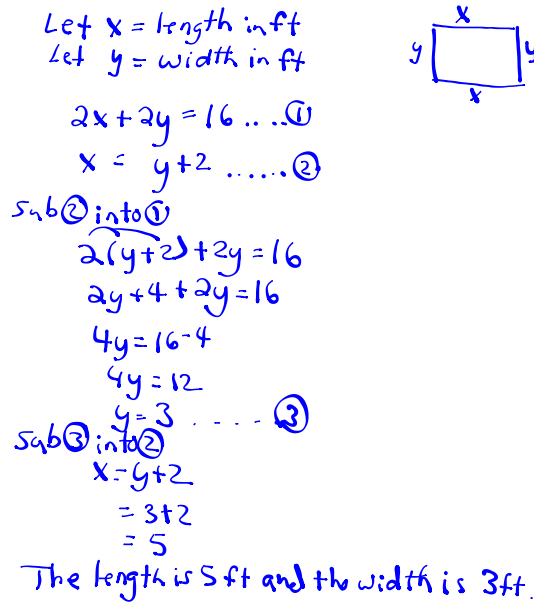 Let x = length in ft
Let y = width in ft
x
y
y
x
2x + 2y = 16 .... ①
x = y + 2 ...... ②
sub ② into ①
2(y+2) + 2y = 16
2y + 4 + 2y = 16
4y = 16 - 4
4y = 12
y = 3 ..... ③
sub ③ into ②
x = y + 2
= 3 + 2
= 5
The length is 5 ft and the width is 3 ft.